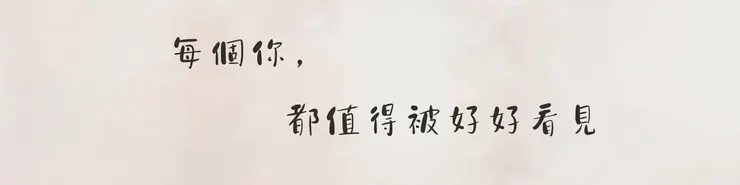 每個你，
都值得被好好看見